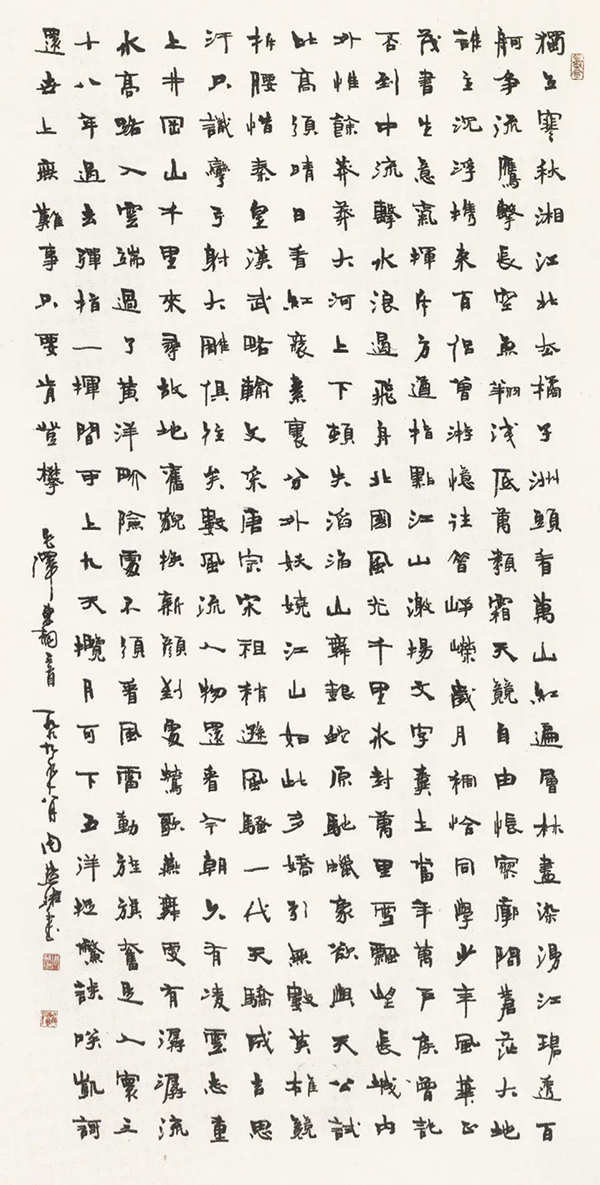 獨立寒秋湘江北去橘子洲頭看萬山紅遍層林盡染漫江碧透百
舸爭流鷹擊長空魚翔淺底萬類霜天競自由悵寥廓問蒼茫大地
誰主沉浮攜來百侶曾游憶往昔崢嶸歲月稠恰同學少年風華正
茂書生意氣揮斥方遒指點江山激揚文字糞土當年萬戶侯曾記
否到中流擊水浪遏飛舟北國風光千里冰封萬里雪飄望長城內
外惟餘莽莽大河上下頓失滔滔山舞銀蛇原馳蠟象欲與天公試
比高須晴日看紅裝素裹分外妖嬈江山如此多嬌引無數英雄競
折腰惜秦皇漢武略輸文采唐宗宋祖稍遜風騷一代天驕成吉思
汗只識彎弓射大雕俱往矣數風流人物還看今朝久有凌雲志重
上井岡山千里來尋故地舊貌換新顏到處鶯歌燕舞更有潺潺流
水高路入雲端過了黃洋界險處不須看風雷動旌旗奮是人寰三
十八年過去彈指一揮間可上九天攬月可下五洋捉鱉談笑凱歌
還世上無難事只要肯登攀 毛澤東詞三首